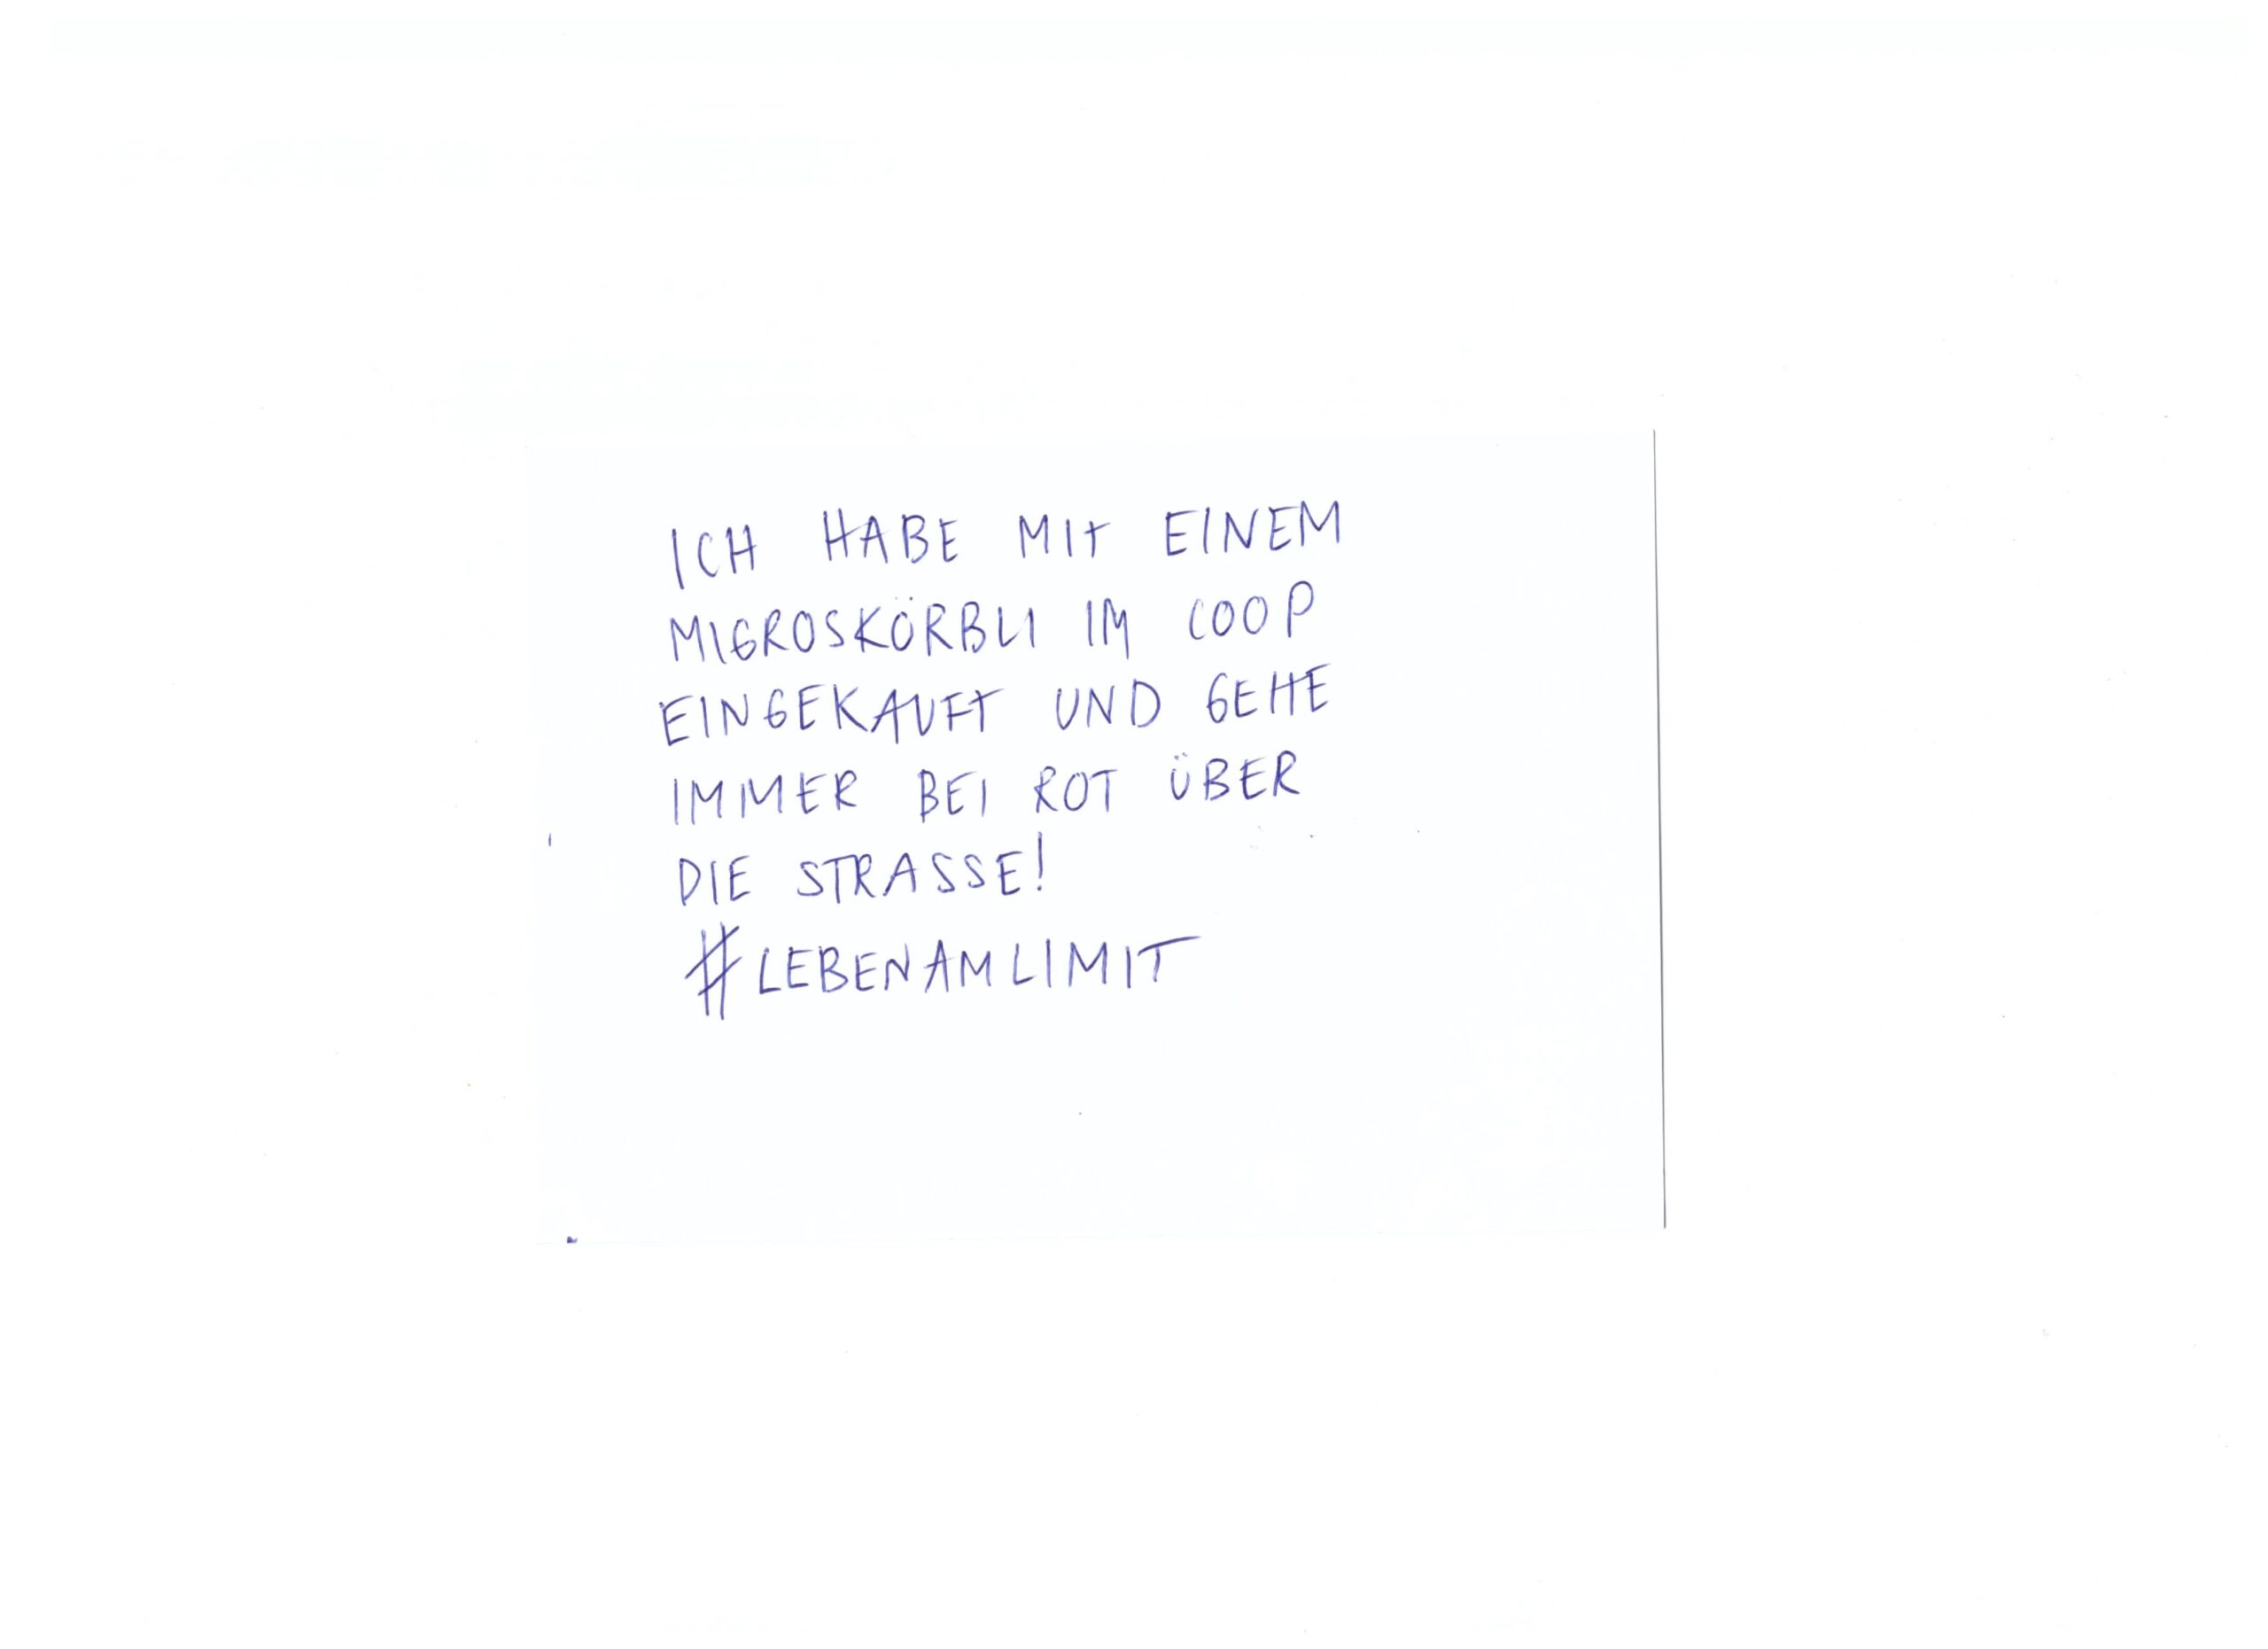 ICH HABE MIT EINEM
MIGROSKÖRBLI IM COOP
EINGEKAUFT UND GEHE
IMMER BEI ROT ÜBER
DIE STRASSE!
#LEBENAMLIMIT